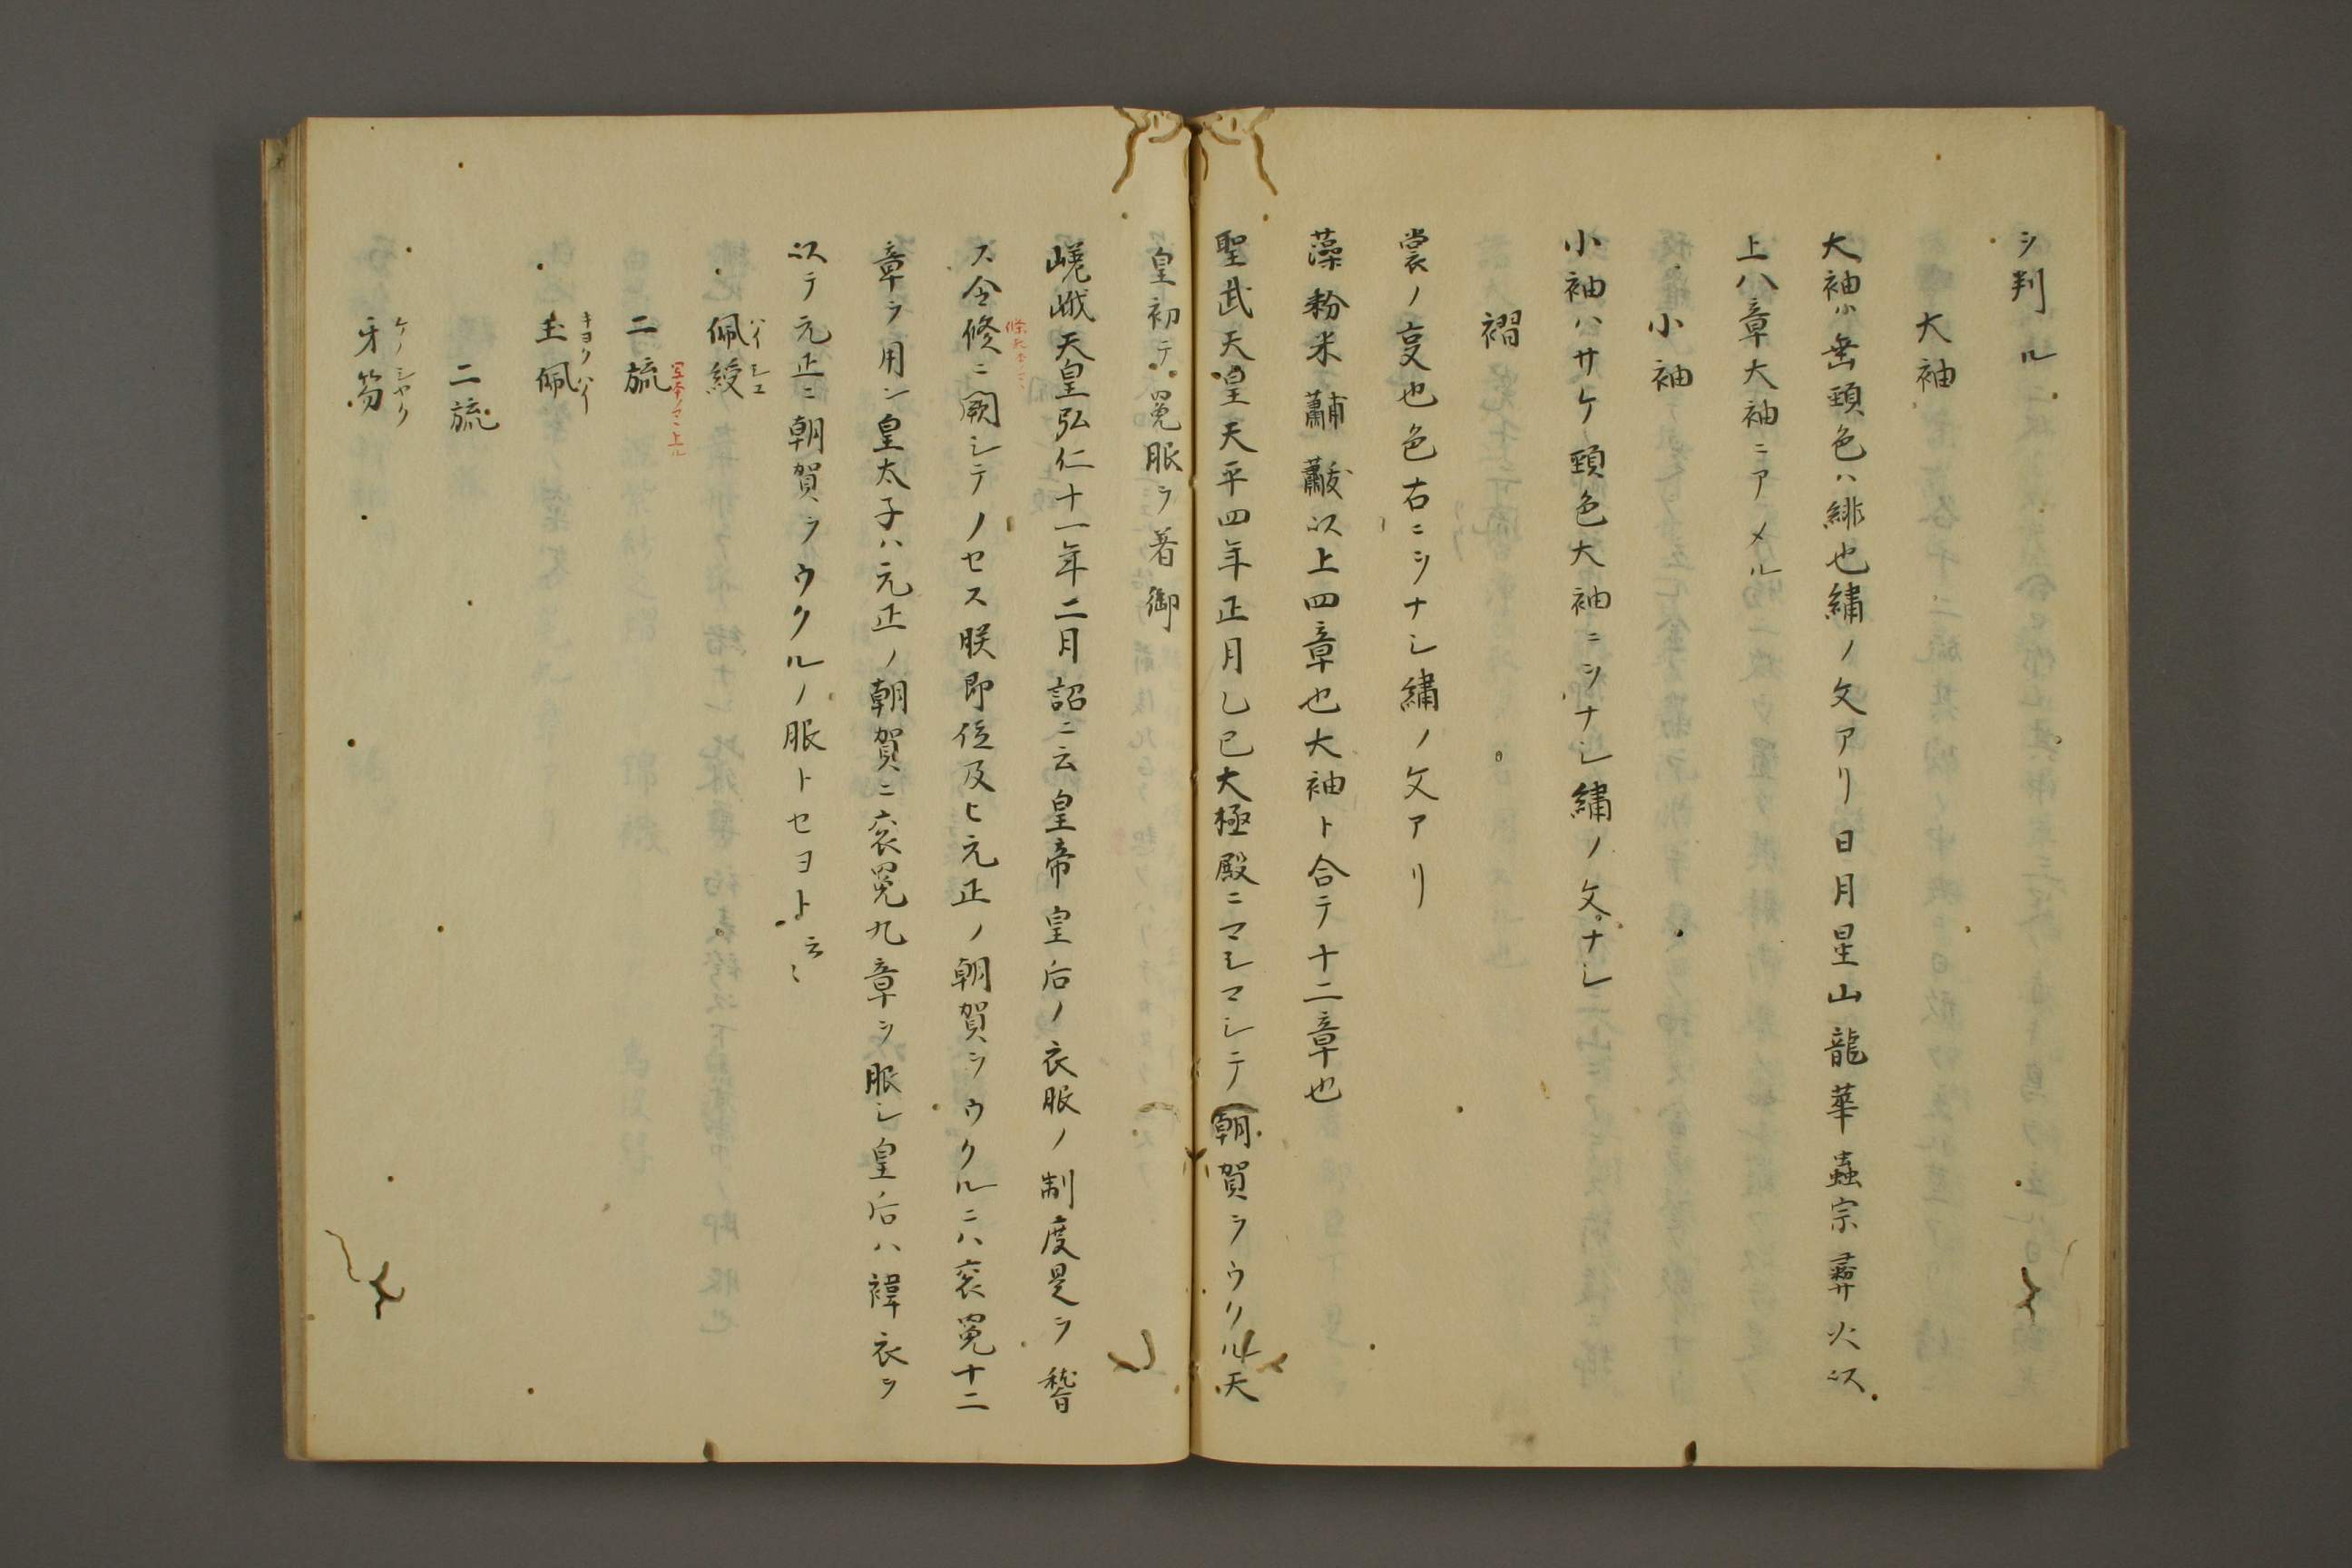 シ判ル
大袖
大袖ハ垂頸色ハ緋也繡ノ文アリ日月星山龍華蟲宗彝火以
上八章大袖ニアメル
小袖
小袖ハサケ頸色大袖ニシナシ繡ノ文ナシ
褶
裳ノ㕝也色右ニシナシ繡ノ文アリ
藻粉米黼黻以上四章也大袖ト合テ十二章也
聖武天皇天平四年正月乙巳大極殿ニマシマシテ朝賀ヲウクル天
皇初テ冕服ヲ着御
嵯峨天皇弘仁十一年二月詔ニ云皇帝皇后ノ衣服ノ制度是ヲ
ス令條ニ闕シテノセス朕即位及ヒ元正ノ朝賀ヲウクルニハ袞冕十二
章ヲ用ン皇太子ハ元正ノ朝賀ニ袞冕九章ヲ服シ皇后ハ褘衣ヲ
以テ元正ニ朝賀ヲウクルノ服トセヨト云〻
佩綬
ハイシユ
二旒
玉佩
キヨクハイ
二旒
牙笏
ケノシヤク